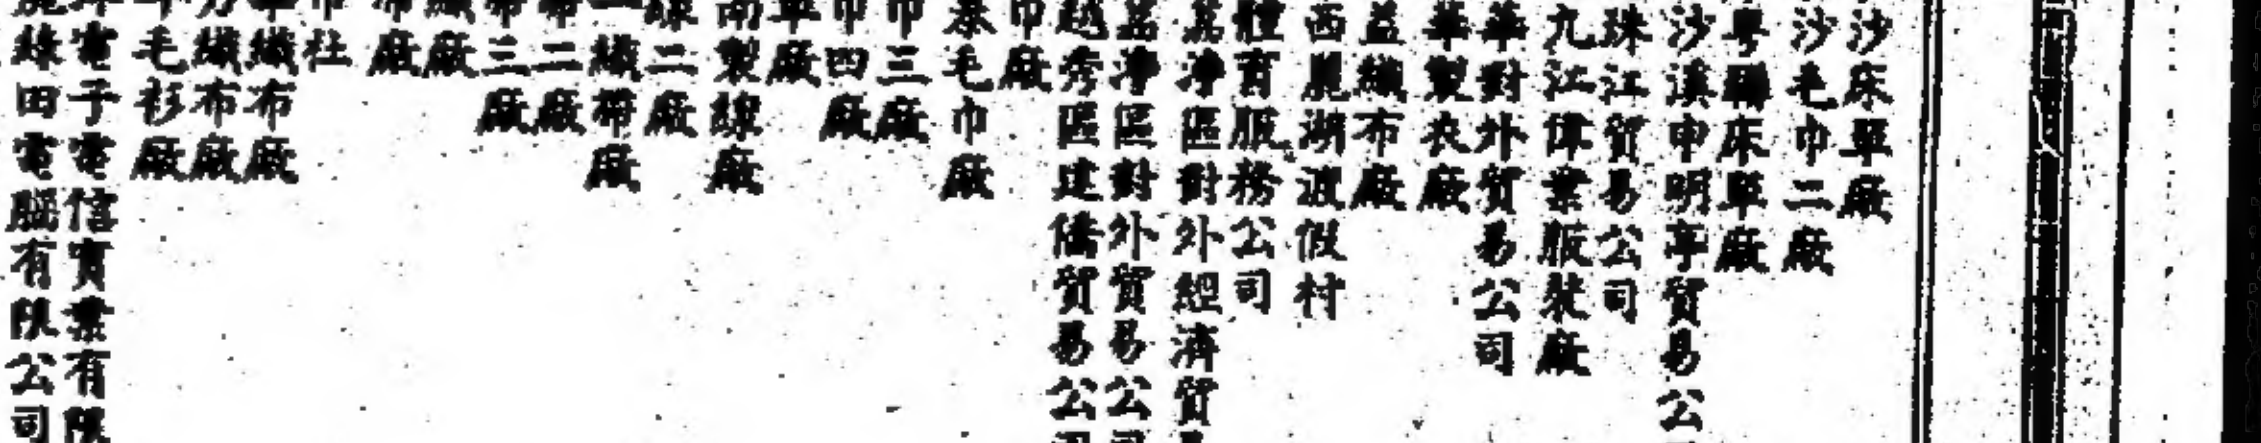 沙床單廠
沙毛巾二廠
粵聯床單廠
沙溪申明亭貿易公
珠江貿易公司
九江偉業服裝廠
華對外貿易公司
華製衣廠
益織布廠
西麗湖渡假村
體育服務公司
荔灣區對外經濟貿
荔灣區對外貿易公
越秀區建僑貿易公
巾廠
泰毛巾廠
巾三廠
巾四廠
單廠
南製線廠
線二廠
織帶廠
帶二廠
帶三廠
織廠
帶廠
布社
華織布廠
方織布廠
毛衫廠
電子電信實業有限
綠田電腦有限公司